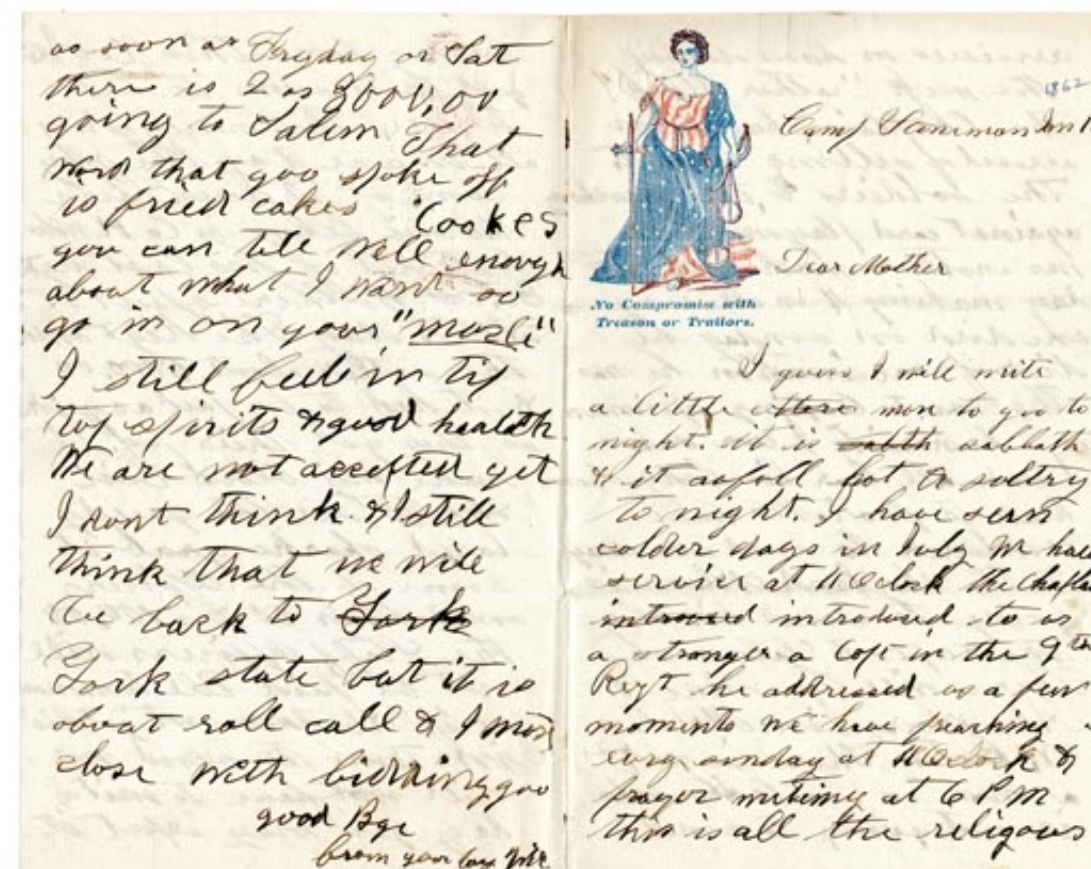 as soon as Fryday or Sat
there is 2 as 3000,00
going to Salem That
word that you spoke off
is fried cakes Cookes
you can tell well enough
about what I want so
go in on your "musle"
I still feele in tip
top spirits & good health
We are not accepted yet
I dont think & I still
think that we will
be back to York
York state but it is
about roll call & I must
close with bidding you
good Bye
from your boy
1862
Camp Jan 1
Dear Mother
No Compromise with
Treason or Traitors.
I guess I will write
a little more to you to
night. it is sabbth sabbath
& it aofull hot & soltry
to night. I have seen
colder days in July We had
service at 11 Oclock the Chapla
introused introdused to us
a stranger a Capt in the 9th
Regt he addressed us a few
moments We have preaching
evry sunday at 11 Oclock &
prayer meting at 6 P M
this is all the religous